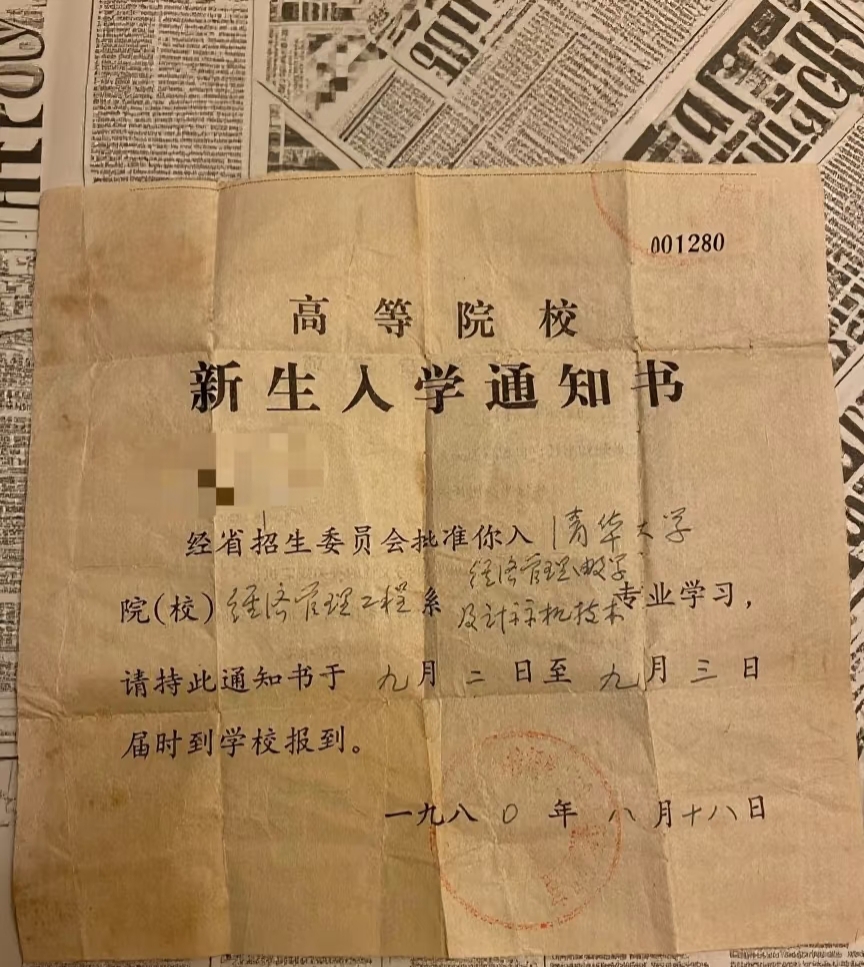 001280
高等院校
新生入学通知书
经省招生委员会批准你入清华大学
院(校)经济管理工程系经济管理数学及计算机技术专业学习，
请持此通知书于九月二日至九月三日
届时到学校报到。
一九八0年八月十八日